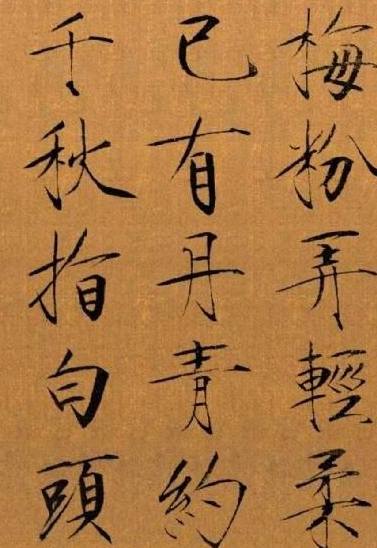 梅粉弄輕柔
已有丹青約
千秋指白頭